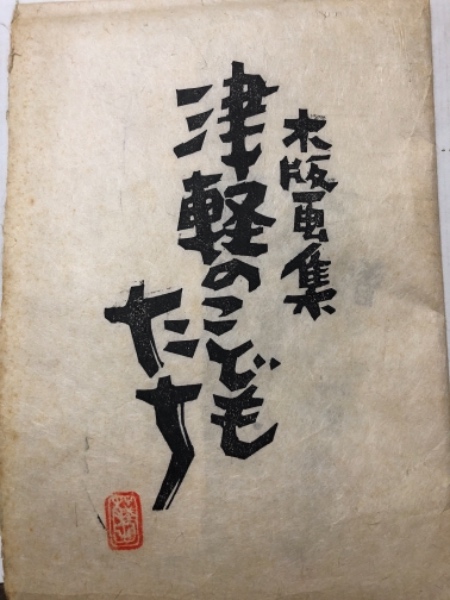 木版画集
津軽のこども
たち